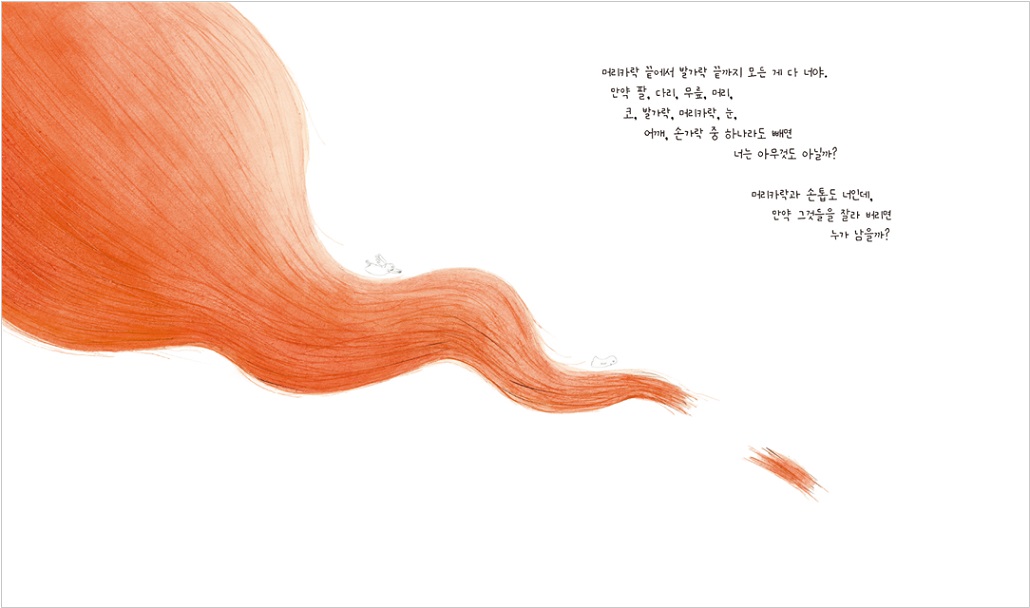 머리카락 끝에서 발가락 끝까지 모든 게 다 너야.
만약 팔, 다리, 무릎, 머리,
코, 발가락, 머리카락, 눈,
어깨, 손가락 중 하나라도 빼면
너는 아무것도 아닐까?
머리카락과 손톱도 너인데,
만약 그것들을 잘라 버리면
누가 남을까?